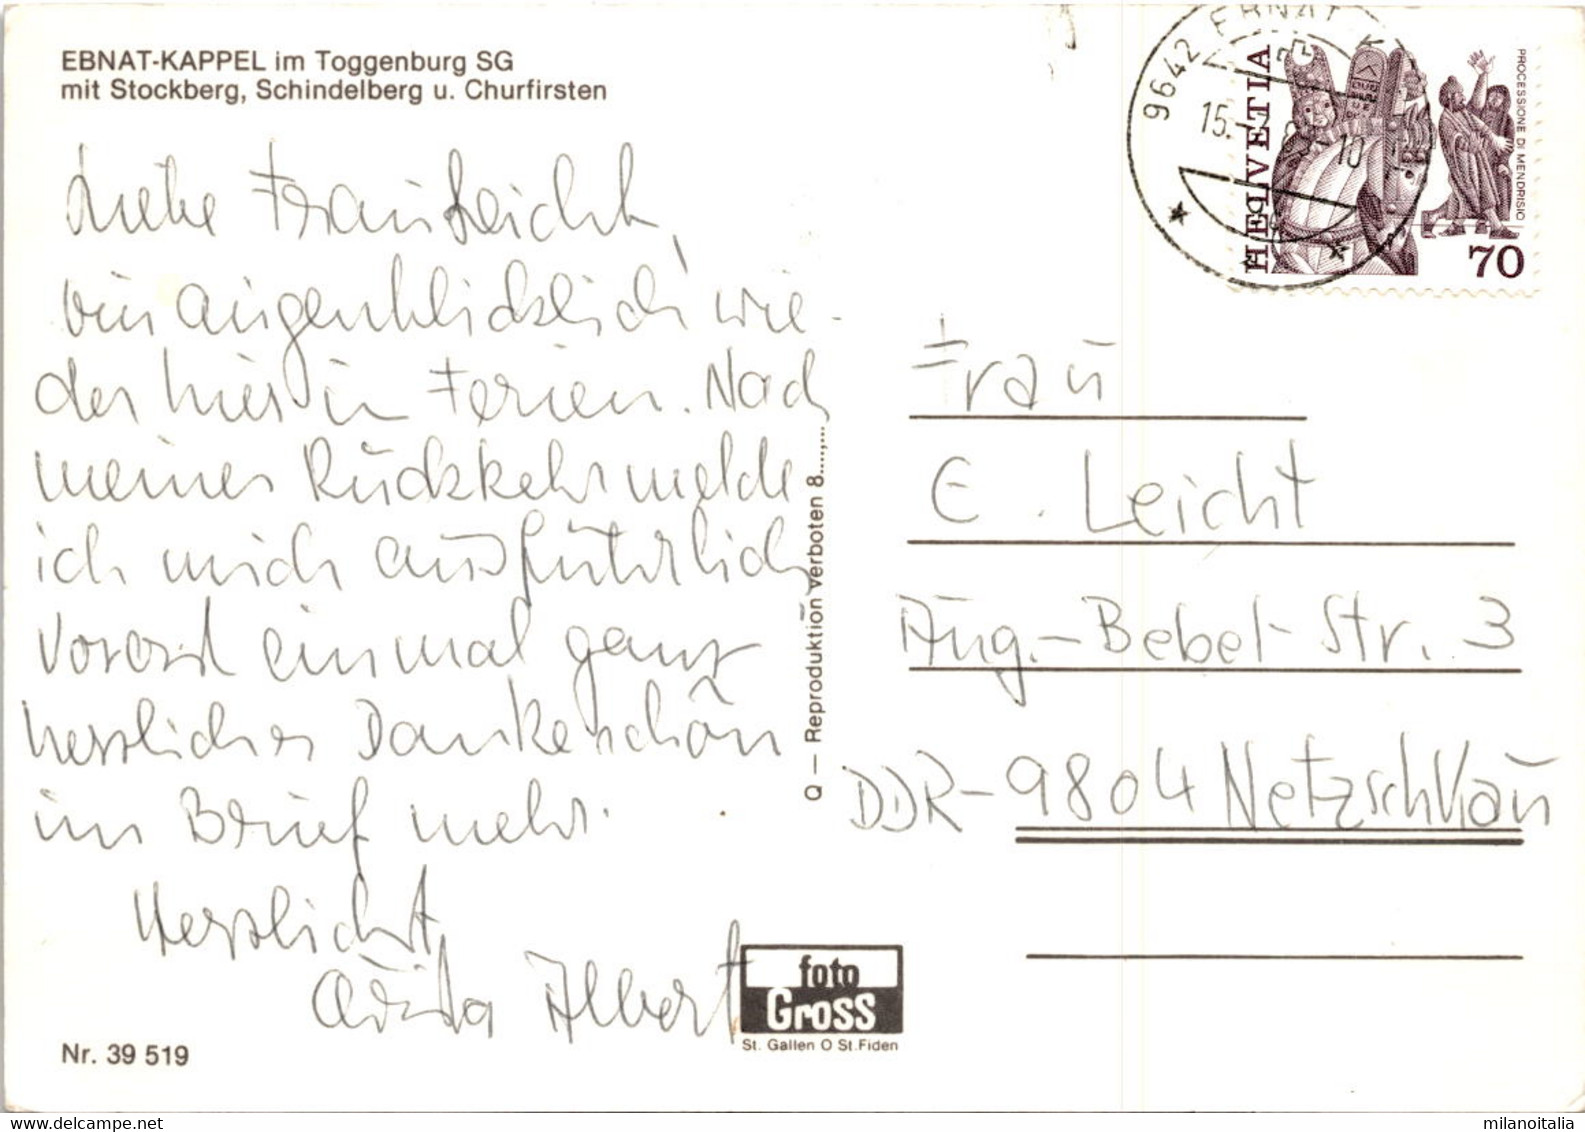 EBNAT-KAPPEL im Toggenburg SG
mit Stockberg, Schindelberg u. Churfirsten
Liebe Frau Leicht,
bin augenblicklich wie-
der hier in Ferien. Nach
meiner Rückkehr melde
ich mich ausführlich
Vorerst einmal ganz
herzliches Dankeschön
im Brief mehr.
Herzlichst
Albert
Nr. 39 519
Q — Reproduktion verboten 8....,...
foto
Gross
St. Gallen O St.Fiden
9642 EBNAT-K
15.
10
HELVETIA
PROCESSIONE DI MENDRISIO
70
Frau
E. Leicht
Aug.-Bebel-Str. 3
DDR-9804 Netzschkau
milanoitalia